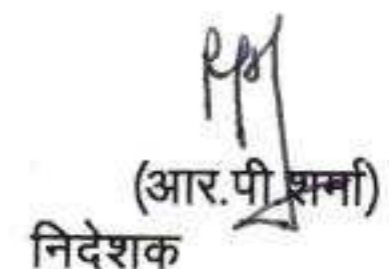 (आर.पी शर्मा)
निदेशक